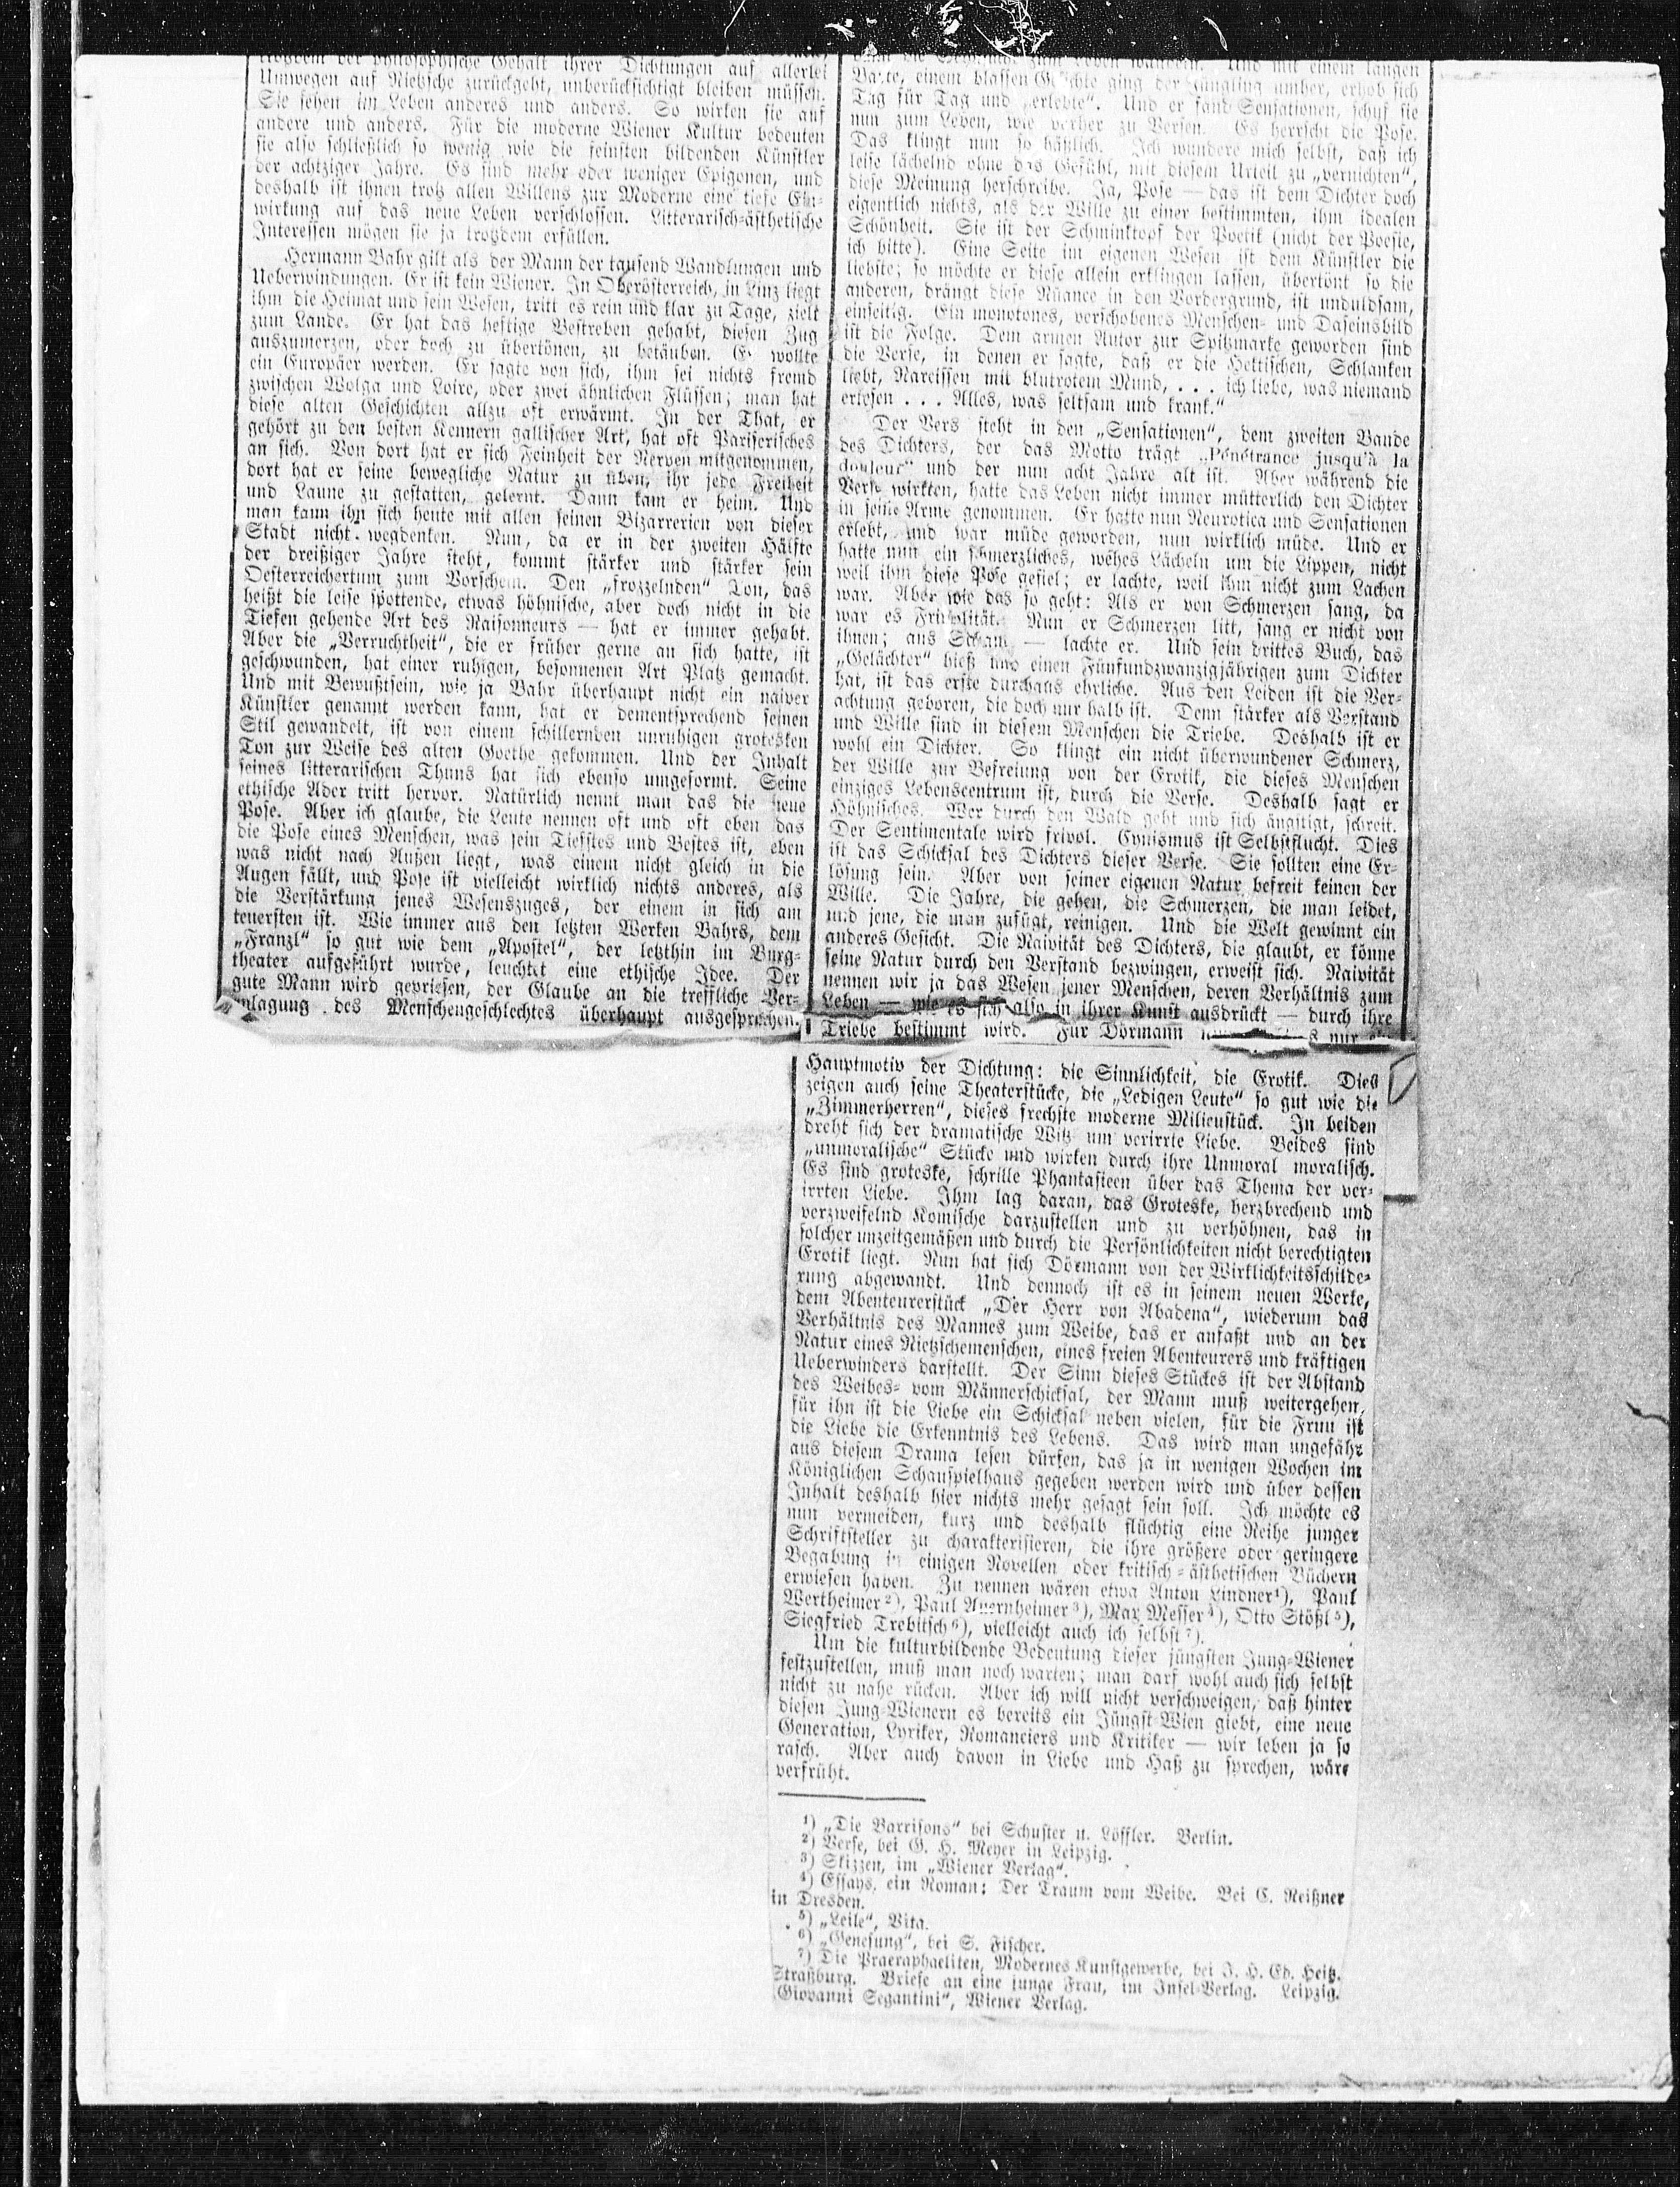 trotzdem der philosophische Gehalt ihrer Dichtungen auf allerlei
Umwegen auf Nietzsche zurückgeht, unberücksichtigt bleiben müssen.
Sie sehen im Leben anderes und anders. So wirken sie auf
andere und anders. Für die moderne Wiener Kultur bedeuten
sie also schließlich so wenig wie die feinsten bildenden Künstler
der achtziger Jahre. Es sind mehr oder weniger Epigonen, und
deshalb ist ihnen trotz allen Willens zur Moderne eine tiefe Ein-
wirkung auf das neue Leben verschlossen. Litterarisch-ästhetische
Interessen mögen sie ja trotzdem erfüllen.
Hermann Bahr gilt als der Mann der tausend Wandlungen und
Ueberwindungen. Er ist kein Wiener. In Oberösterreich, in Linz liegt
ihm die Heimat und sein Wesen, tritt es rein und klar zu Tage, zielt
zum Lande. Er hat das heftige Bestreben gehabt, diesen Zug
auszumerzen, oder doch zu übertönen, zu betäuben. Er wollte
ein Europäer werden. Er sagte von sich, ihm sei nichts fremd
zwischen Wolga und Loire, oder zwei ähnlichen Flüssen; man hat
diese alten Geschichten allzu oft erwärmt. In der That, er
gehört zu den besten Kennern gallischer Art, hat oft Pariserisches
an sich. Von dort hat er sich Feinheit der Nerven mitgenommen,
dort hat er seine bewegliche Natur zu üben, ihr jede Freiheit
und Laune zu gestatten, gelernt. Dann kam er heim. Und
man kann ihn sich heute mit allen seinen Bizarrerien von dieser
Stadt nicht wegdenken. Nun, da er in der zweiten Hälfte
der dreißiger Jahre steht, kommt stärker und stärker sein
Oesterreichertum zum Vorschein. Den „frozzelnden“ Ton, das
heißt die leise spottende, etwas höhnische, aber doch nicht in die
Tiefen gehende Art des Raisonneurs — hat er immer gehabt.
Aber die „Verruchtheit“, die er früher gerne an sich hatte, ist
geschwunden, hat einer ruhigen, besonnenen Art Platz gemacht.
Und mit Bewußtsein, wie ja Bahr überhaupt nicht ein naiver
Künstler genannt werden kann, hat er dementsprechend seinen
Stil gewandelt, ist von einem schillernden unruhigen grotesken
Ton zur Weise des alten Goethe gekommen. Und der Inhalt
seines litterarischen Thuns hat sich ebenso umgeformt. Seine
ethische Ader tritt hervor. Natürlich nennt man das die neue
Pose. Aber ich glaube, die Leute nennen oft und oft eben das
die Pose eines Menschen, was sein Tiefstes und Bestes ist, eben
was nicht nach Außen liegt, was einem nicht gleich in die
Augen fällt, und Pose ist vielleicht wirklich nichts anderes, als
die Verstärkung jenes Wesenszuges, der einem in sich am
teuersten ist. Wie immer aus den letzten Werken Bahrs, dem
„Franzl“ so gut wie dem „Apostel“, der letzthin im Burg-
theater aufgeführt wurde, leuchtet eine ethische Idee. Der
gute Mann wird gepriesen, der Glaube an die treffliche Ver-
anlagung des Menschengeschlechtes überhaupt ausgesprochen.
Und mit einem langen
Barte, einem blassen Gesichte ging der Jüngling umher, erhob sich
Tag für Tag und „erlebte“. Und er fand Sensationen, schuf sie
nun zum Leben, wie vorher zu Versen. Es herrscht die Pose.
Das klingt nun so häßlich. Ich wundere mich selbst, daß ich
leise lächelnd ohne das Gefühl, mit diesem Urteil zu „vernichten“,
diese Meinung herschreibe. Ja, Pose — das ist dem Dichter doch
eigentlich nichts, als der Wille zu einer bestimmten, ihm idealen
Schönheit. Sie ist der Schminktopf der Poetik (nicht der Poesie,
ich bitte). Eine Seite im eigenen Wesen ist dem Künstler die
liebste; so möchte er diese allein erklingen lassen, übertönt so die
anderen, drängt diese Nüance in den Vordergrund, ist unduldsam,
einseitig. Ein monotones, verschobenes Menschen- und Daseinsbild
ist die Folge. Dem armen Autor zur Spitzmarke geworden sind
die Verse, in denen er sagte, daß er die Hektischen, Schlanken
liebt, Narcissen mit blutrotem Mund, . . . ich liebe, was niemand
erlesen . . . Alles, was seltsam und krank.“
Der Vers steht in den „Sensationen“, dem zweiten Bande
des Dichters, der das Motto trägt „Pénétrance jusqu'à la
douleur“ und der nun acht Jahre alt ist. Aber während die
Verse wirkten, hatte das Leben nicht immer mütterlich den Dichter
in seine Arme genommen. Er hatte nun Neurotica und Sensationen
erlebt, und war müde geworden, nun wirklich müde. Und er
hatte nun ein schmerzliches, wehes Lächeln um die Lippen, nicht
weil ihm diese Pose gefiel; er lachte, weil ihm nicht zum Lachen
war. Aber wie das so geht: Als er von Schmerzen sang, da
war es Frivolität. Nun er Schmerzen litt, sang er nicht von
ihnen; aus Scham — lachte er. Und sein drittes Buch, das
„Gelächter“ hieß und einen Fünfundzwanzigjährigen zum Dichter
hat, ist das erste durchaus ehrliche. Aus den Leiden ist die Ver-
achtung geboren, die doch nur halb ist. Denn stärker als Verstand
und Wille sind in diesem Menschen die Triebe. Deshalb ist er
wohl ein Dichter. So klingt ein nicht überwundener Schmerz,
der Wille zur Befreiung von der Erotik, die dieses Menschen
einziges Lebenscentrum ist, durch die Verse. Deshalb sagt er
Höhnisches. Wer durch den Wald geht und sich ängstigt, schreit.
Der Sentimentale wird frivol. Cynismus ist Selbstflucht. Dies
ist das Schicksal des Dichters dieser Verse. Sie sollten eine Er-
lösung sein. Aber von seiner eigenen Natur befreit keinen der
Wille. Die Jahre, die gehen, die Schmerzen, die man leidet,
und jene, die man zufügt, reinigen. Und die Welt gewinnt ein
anderes Gesicht. Die Naivität des Dichters, die glaubt, er könne
seine Natur durch den Verstand bezwingen, erweist sich. Naivität
nennen wir ja das Wesen jener Menschen, deren Verhältnis zum
Leben — wie es sich also in ihrer Kunst ausdrückt — durch ihre
Triebe bestimmt wird. Für Dörmann nur
Hauptmotiv der Dichtung: die Sinnlichkeit, die Erotik. Dies
zeigen auch seine Theaterstücke, die „Ledigen Leute“ so gut wie die
„Zimmerherren“, dieses frechste moderne Milieustück. In beiden
dreht sich der dramatische Witz um verirrte Liebe. Beides sind
„unmoralische“ Stücke und wirken durch ihre Unmoral moralisch.
Es sind groteske, schrille Phantasieen über das Thema der ver-
irrten Liebe. Ihm lag daran, das Groteske, herzbrechend und
verzweifelnd Komische darzustellen und zu verhöhnen, das in
solcher unzeitgemäßen und durch die Persönlichkeiten nicht berechtigten
Erotik liegt. Nun hat sich Dörmann von der Wirklichkeitsschilde-
rung abgewandt. Und dennoch ist es in seinem neuen Werke,
dem Abenteurerstück „Der Herr von Abadena“, wiederum das
Verhältnis des Mannes zum Weibe, das er anfaßt und an der
Natur eines Nietzschemenschen, eines freien Abenteurers und kräftigen
Ueberwinders darstellt. Der Sinn dieses Stückes ist der Abstand
des Weibes- vom Männerschicksal, der Mann muß weitergehen,
für ihn ist die Liebe ein Schicksal neben vielen, für die Frau ist
die Liebe die Erkenntnis des Lebens. Das wird man ungefähr
aus diesem Drama lesen dürfen, das ja in wenigen Wochen im
Königlichen Schauspielhaus gegeben werden wird und über dessen
Inhalt deshalb hier nichts mehr gesagt sein soll. Ich möchte es
nun vermeiden, kurz und deshalb flüchtig eine Reihe junger
Schriftsteller zu charakterisieren, die ihre größere oder geringere
Begabung in einigen Novellen oder kritisch-ästhetischen Büchern
erwiesen haben. Zu nennen wären etwa Anton Lindner¹), Paul
Wertheimer²), Paul Auernheimer³), Max Messer⁴), Otto Stößl⁵),
Siegfried Trebitsch⁶), vielleicht auch ich selbst⁷).
Um die kulturbildende Bedeutung dieser jüngsten Jung-Wiener
festzustellen, muß man noch warten; man darf wohl auch sich selbst
nicht zu nahe rücken. Aber ich will nicht verschweigen, daß hinter
diesen Jung-Wienern es bereits ein Jüngst-Wien giebt, eine neue
Generation, Lyriker, Romanciers und Kritiker — wir leben ja so
rasch. Aber auch davon in Liebe und Haß zu sprechen, wäre
verfrüht.
¹) „Die Barrisons“ bei Schuster u. Löffler. Berlin.
²) Verse, bei G. H. Meyer in Leipzig.
³) Skizzen, im „Wiener Verlag“.
⁴) Essays, ein Roman: Der Traum vom Weibe. Bei C. Reißner
in Dresden.
⁵) „Leile“, Vita.
⁶) „Genesung“, bei S. Fischer.
⁷) Die Praeraphaeliten, Modernes Kunstgewerbe, bei J. H. Ed. Heitz.
Straßburg. Briefe an eine junge Frau, im Insel-Verlag. Leipzig.
„Giovanni Segantini“, Wiener Verlag.